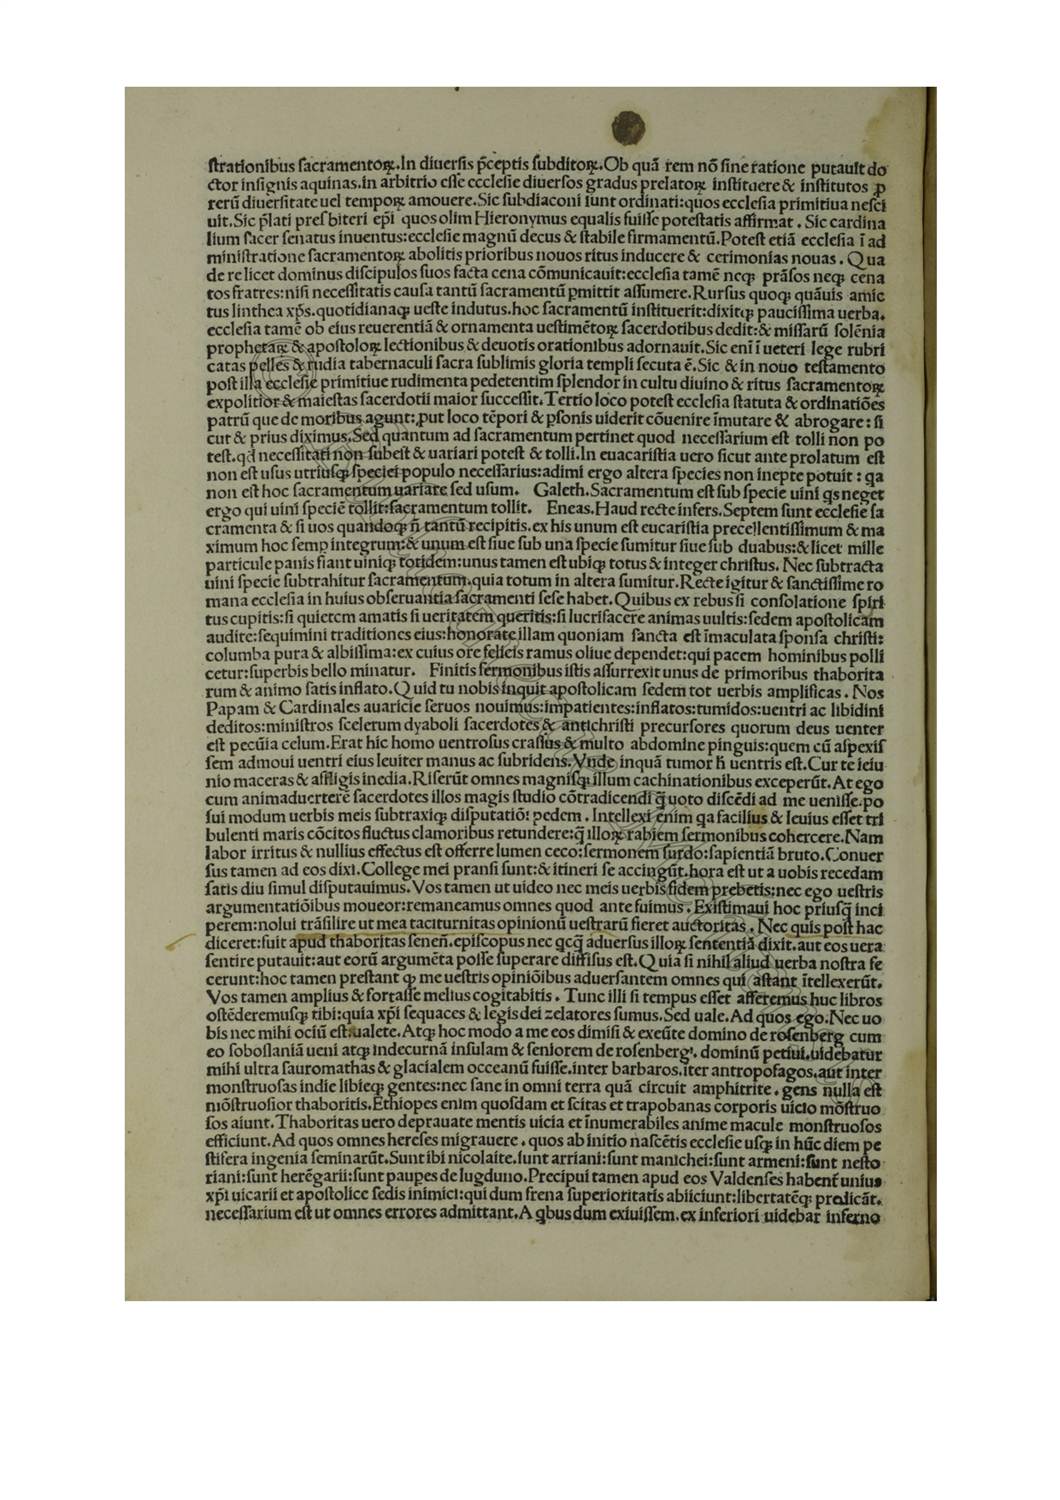 strationibus sacramentoꝝ.In diuersis p̄ceptis subditoꝝ.Ob quā rem nō sine ratione putauit do
ctor insignis aquinas.in arbitrio esse ecclesie diuersos gradus prelatoꝝ instituere & institutos ꝓ
rerū diuersitate uel tempoꝝ amouere.Sic subdiaconi sunt ordinati:quos ecclesia primitiua nesci
uit.Sic p̄lati presbiteri ep̄i quos olim Hieronymus equalis fuisse potestatis affirmat. Sic cardina
lium sacer senatus inuentus:ecclesie magnū decus & stabile firmamentū.Potest etiā ecclesia ī ad
ministratione sacramentoꝝ abolitis prioribus nouos ritus inducere & cerimonias nouas. Qua
de re licet dominus discipulos suos facta cena cōmunicauit:ecclesia tamē neqꝫ prāsos neqꝫ cena
tos fratres:nisi necessitatis causa tantū sacramentū ꝑmittit assumere.Rursus quoqꝫ quāuis amic
tus linthea xp̄s.quotidianaqꝫ ueste indutus.hoc sacramentū instituerit:dixitqꝫ paucissima uerba.
ecclesia tamē ob eius reuerentiā & ornamenta uestimētoꝝ sacerdotibus dedit:& missarū solēnia
prophetaꝝ & apostoloꝝ lectionibus & deuotis orationibus adornauit.Sic enī ī ueteri lege rubri
catas pelles & rudia tabernaculi sacra sublimis gloria templi secuta ē.Sic & in nouo testamento
post illa ecclesie primitiue rudimenta pedetentim splendor in cultu diuino & ritus sacramentoꝝ
expolitior & maiestas sacerdotii maior successit.Tertio loco potest ecclesia statuta & ordinatiōes
patrū que de moribus agunt:ꝓut loco tēpori & ꝑsonis uiderit cōuenire īmutare & abrogare: si
cut & prius diximus.Sed quantum ad sacramentum pertinet quod necessarium est tolli non po
test.qđ necessitati non subest & uariari potest & tolli.In euacaristia uero sicut ante prolatum est
non est usus utriusqꝫ speciei populo necessarius:adimi ergo altera species non inepte potuit: qa
non est hoc sacramentum uariare sed usum. Galeth.Sacramentum est sub specie uini qs neget
ergo qui uini speciē tollit:sacramentum tollit. Eneas.Haud recte infers.Septem sunt ecclesie sa
cramenta & si uos quandoqꝫ n̄ tantū recipitis.ex his unum est eucaristia precellentissimum & ma
ximum hoc semꝑ integrum:& unum est siue sub una specie sumitur siue sub duabus:& licet mille
particule panis fiant uiniqꝫ totidem:unus tamen est ubiqꝫ totus & integer christus. Nec subtracta
uini specie subtrahitur sacramentum.quia totum in altera sumitur.Recte igitur & sanctissime ro
mana ecclesia in huius obseruantia sacramenti sese habet.Quibus ex rebus si consolatione spiri
tus cupitis:si quietem amatis si ueritatem queritis:si lucrifacere animas uultis:sedem apostolicam
audite:sequimini traditiones eius:honorate illam quoniam sancta est īmaculata sponsa christi:
columba pura & albissima:ex cuius ore felicis ramus oliue dependet:qui pacem hominibus polli
cetur:superbis bello minatur. Finitis sermonibus istis assurrexit unus de primoribus thaborita
rum & animo satis inflato.Quid tu nobis inquit apostolicam sedem tot uerbis amplificas. Nos
Papam & Cardinales auaricie seruos nouimus:impatientes:inflatos:tumidos:uentri ac libidini
deditos:ministros scelerum dyaboli sacerdotes & antichristi precursores quorum deus uenter
est pecūia celum.Erat hic homo uentrosus crassus & multo abdomine pinguis:quem cū aspexis
sem admoui uentri eius leuiter manus ac subridens.Vnde inquā tumor h̄ uentris est.Cur te ieiu
nio maceras & affligis inedia.Riserūt omnes magnisqꝫ illum cachinationibus exceperūt.At ego
cum animaduerterē sacerdotes illos magis studio cōtradicendi q̄ uoto discēdi ad me uenisse.po
sui modum uerbis meis subtraxiqꝫ disputatiōi pedem. Intellexi enim qa facilius & leuius esset tri
bulenti maris cōcitos fluctus clamoribus retundere:q̄ illoꝝ rabiem sermonibus cohercere.Nam
labor irritus & nullius effectus est offerre lumen ceco:sermonem surdo:sapientiā bruto.Conuer
sus tamen ad eos dixi.College mei pransi sunt:& itineri se accingūt.hora est ut a uobis recedam
satis diu simul disputauimus.Vos tamen ut uideo nec meis uerbis fidem prebetis:nec ego uestris
argumentatiōibus moueor:remaneamus omnes quod ante fuimus. Existimaui hoc priusq̄ inci
perem:nolui trāsilire ut mea taciturnitas opinionū uestrarū fieret auctoritas. Nec quis post hac
diceret:fuit apud thaboritas seneñ.episcopus nec qcq̄ aduersus illoꝝ sententiā dixit.aut eos uera
sentire putauit:aut eorū argumēta posse superare diffisus est.Quia si nihil aliud uerba nostra fe
cerunt:hoc tamen prestant qꝫ me uestris opiniōibus aduersantem omnes qui astant ītellexerūt.
Vos tamen amplius & fortasse melius cogitabitis. Tunc illi si tempus esset afferemus huc libros
ostēderemusqꝫ tibi:quia xp̄i sequaces & legis dei zelatores sumus.Sed uale.Ad quos ego.Nec uo
bis nec mihi ociū est:ualete.Atqꝫ hoc modo a me eos dimisi & exeūte domino de rosenberg cum
eo soboslaniā ueni atqꝫ indecurnā insulam & seniorem de rosenberg'. dominū petiui.uidebatur
mihi ultra sauromathas & glacialem occeanū fuisse.inter barbaros.iter antropofagos.aut inter
monstruosas indie libieqꝫ gentes:nec sane in omni terra quā circuit amphitrite. gens nulla est
mōstruosior thaboritis.Ethiopes enim quosdam et scitas et trapobanas corporis uicio mōstruo
sos aiunt.Thaboritas uero deprauate mentis uicia et īnumerabiles anime macule monstruosos
efficiunt.Ad quos omnes hereses migrauere. quos ab initio nascētis ecclesie usqꝫ in hūc diem pe
stifera ingenia seminarūt.Sunt ibi nicolaite.sunt arriani:sunt manichei:sunt armeni:sunt nesto
riani:sunt herēgarii:sunt paupes de lugduno.Precipui tamen apud eos Valdenses habent̄ unius
xp̄i uicarii et apostolice sedis inimici:qui dum frena superioritatis abiiciunt:libertatēqꝫ predicāt.
necessarium est ut omnes errores admittant.A qbus dum exiuissem.ex inferiori uidebar inferno